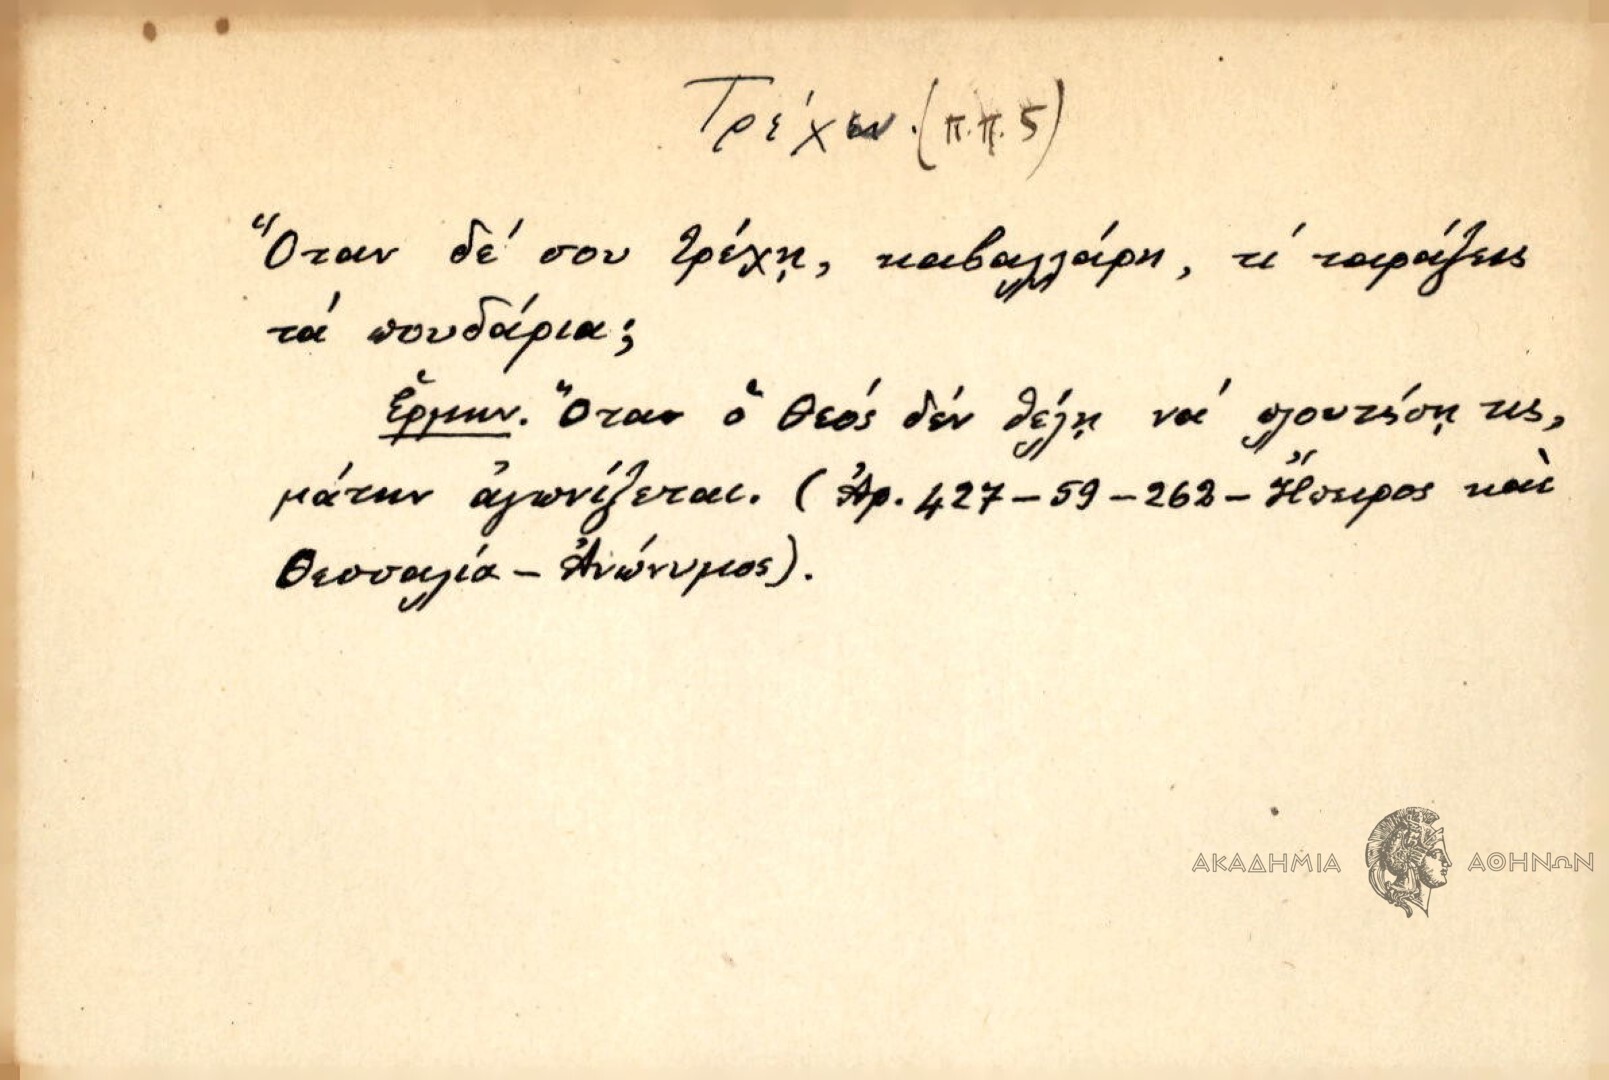 Τρέχω. (π.π. 5)
Ὅταν δέ σου τρέχῃ, καβαλλάρη, τί ταράζεις
τά πουδάρια;
Ἑρμην. Ὅταν ὁ θεός δέν θέλῃ νά πλουτίσῃ τις,
μάτην ἀγωνίζεται. (Ἀρ. 427-59-262-Ἤπειρος καὶ
Θεσσαλία - Ἀνώνυμος).
ΑΚΑΔΗΜΙΑ ΑΘΗΝΩΝ